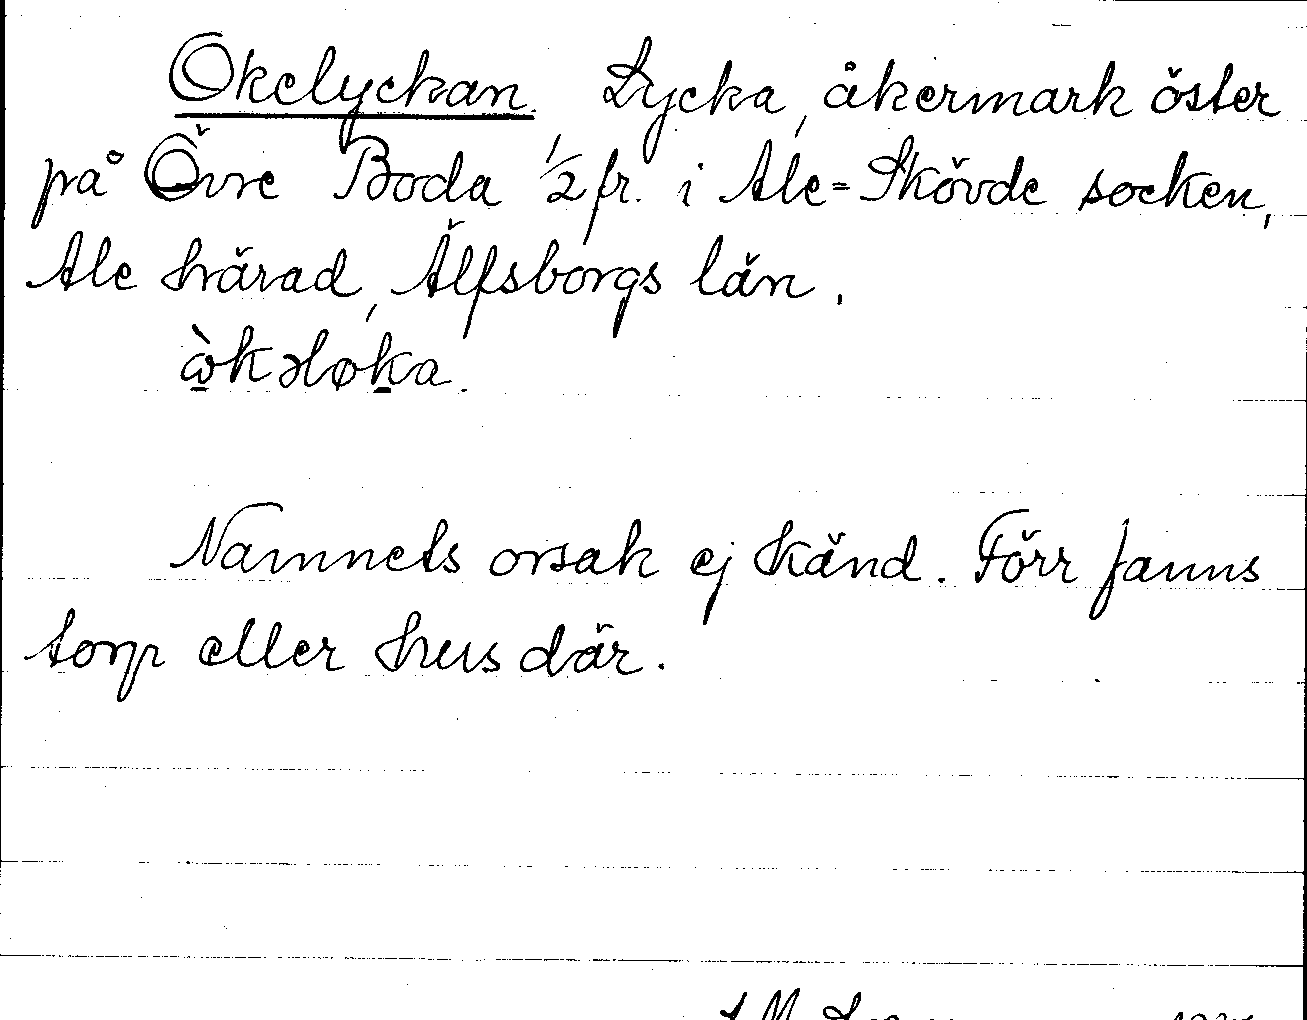 Okelyckan. Lycka, åkermark öster
på Övre Boda 1/2 fr. i Ale-Skövde socken,
Ale härad, Älfsborgs län.
ὼkəløka.
Namnets orsak ej känd. Förr fanns
torp eller hus där.